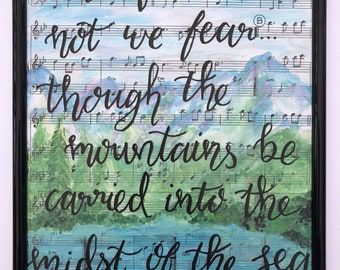 not we fear...
B
though the
mountains be
carried into the
midst of the sea